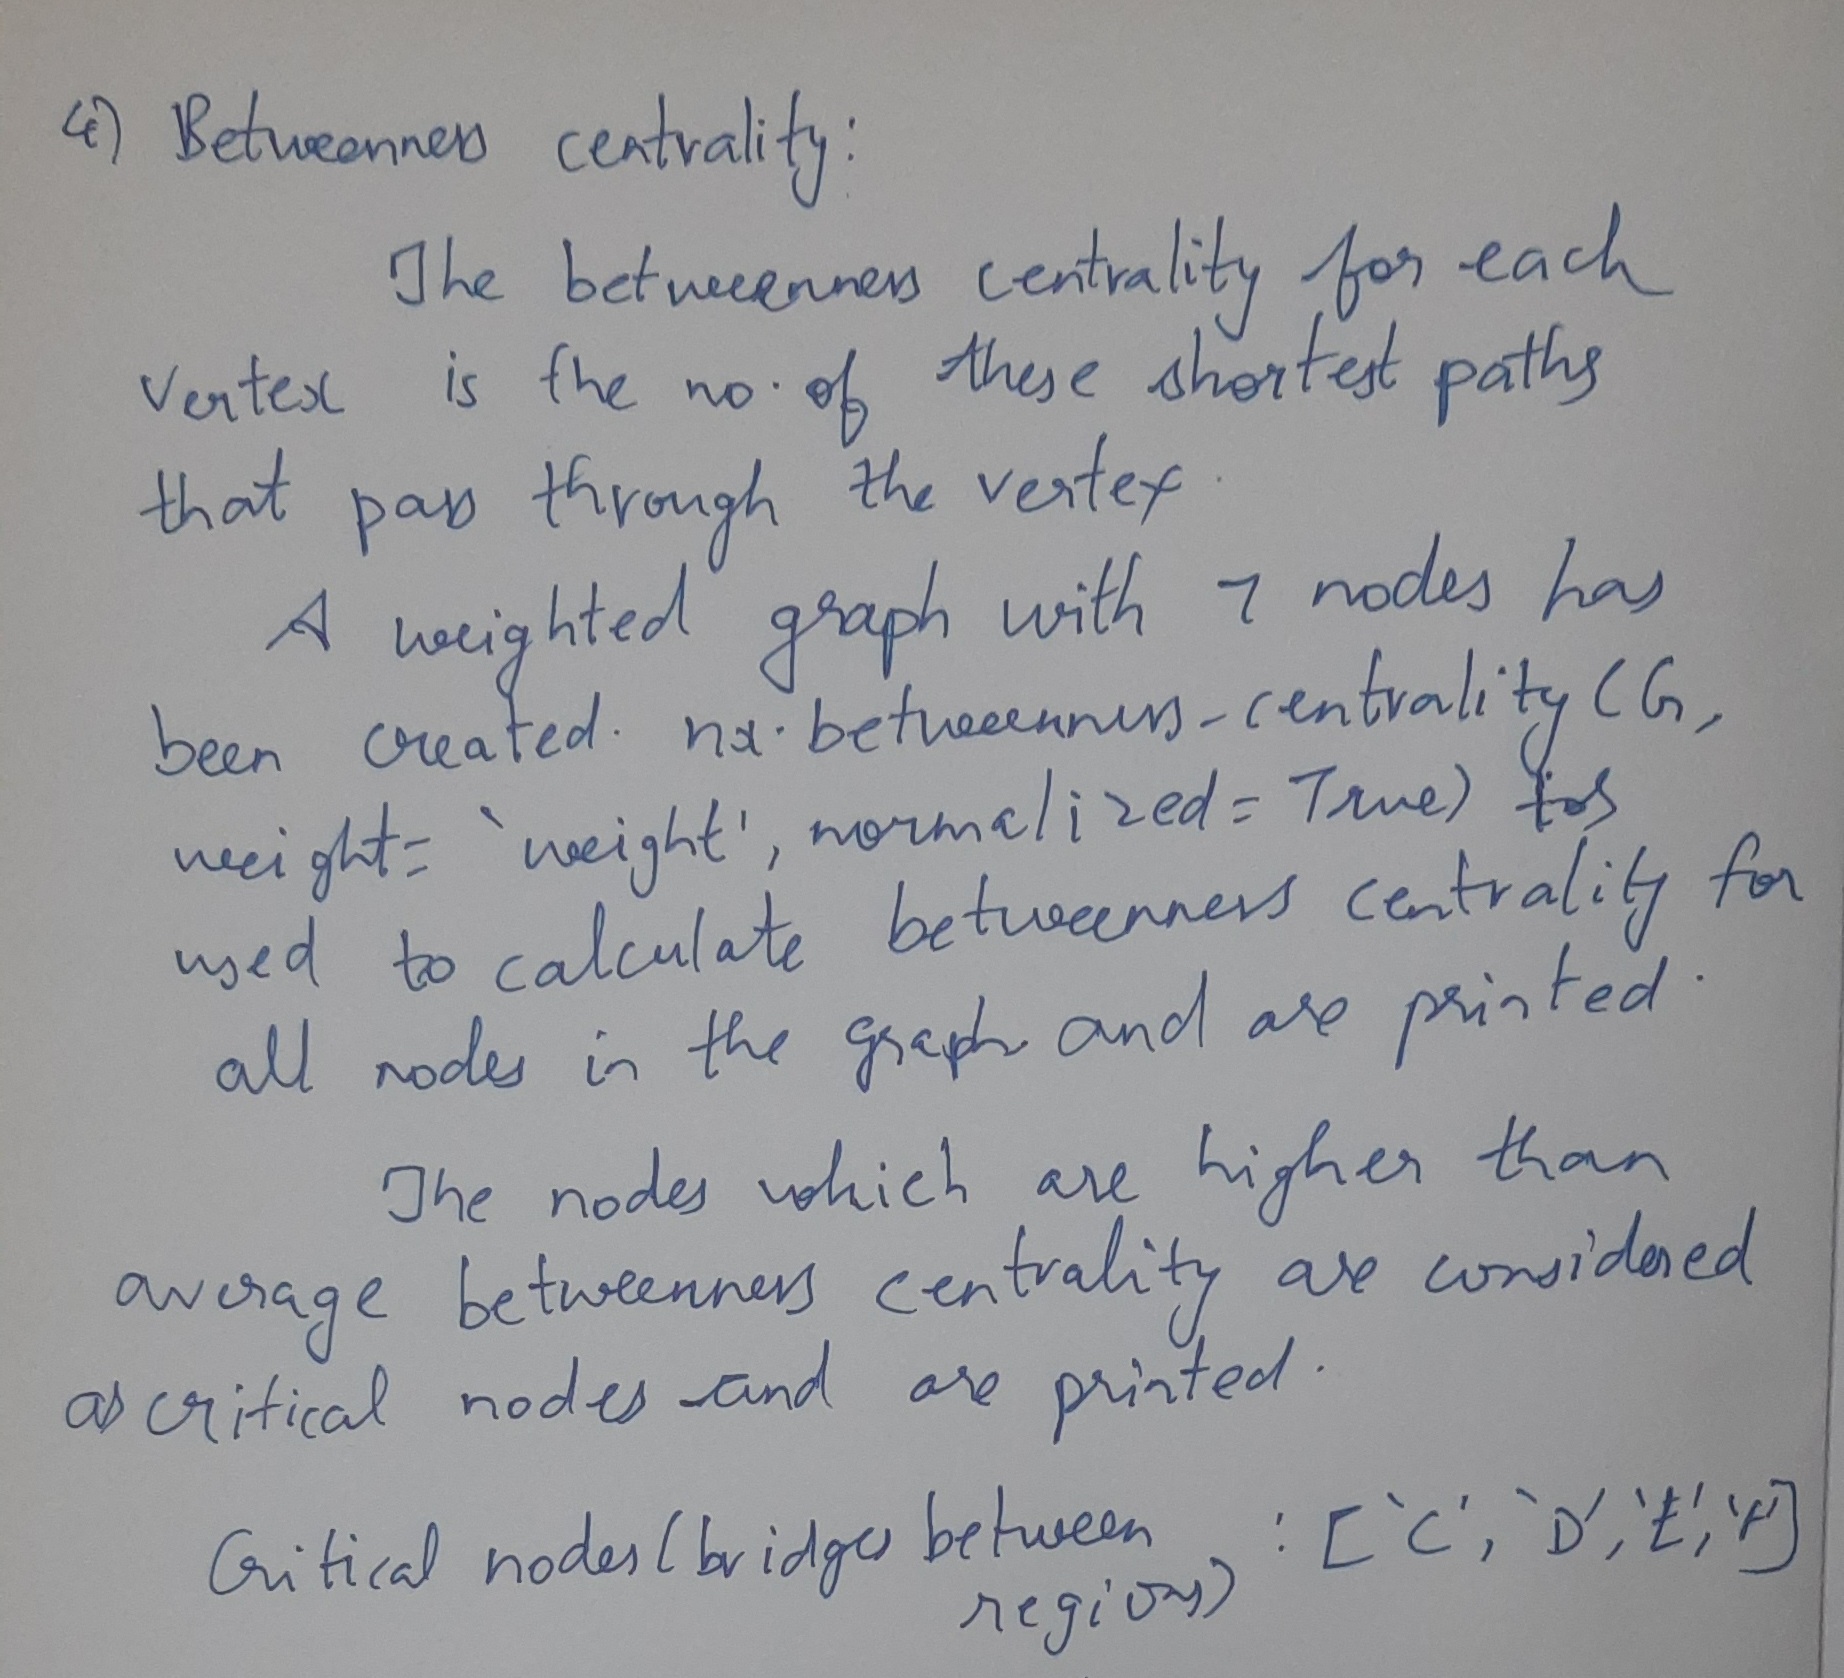 4) Betweenness centrality:
The betweenness centrality for each
vertex is the no. of these shortest paths
that pass through the vertex.
A weighted graph with 7 nodes has
been created. nx.betweenness-centrality (G,
weight = 'weight', normalized = True) is
used to calculate betweenness centrality for
all nodes in the graph and are printed.
The nodes which are higher than
average betweenness centrality are considered
as critical nodes and are printed.
Critical nodes (bridges between : ['C', 'D', 'E', 'F']
regions)